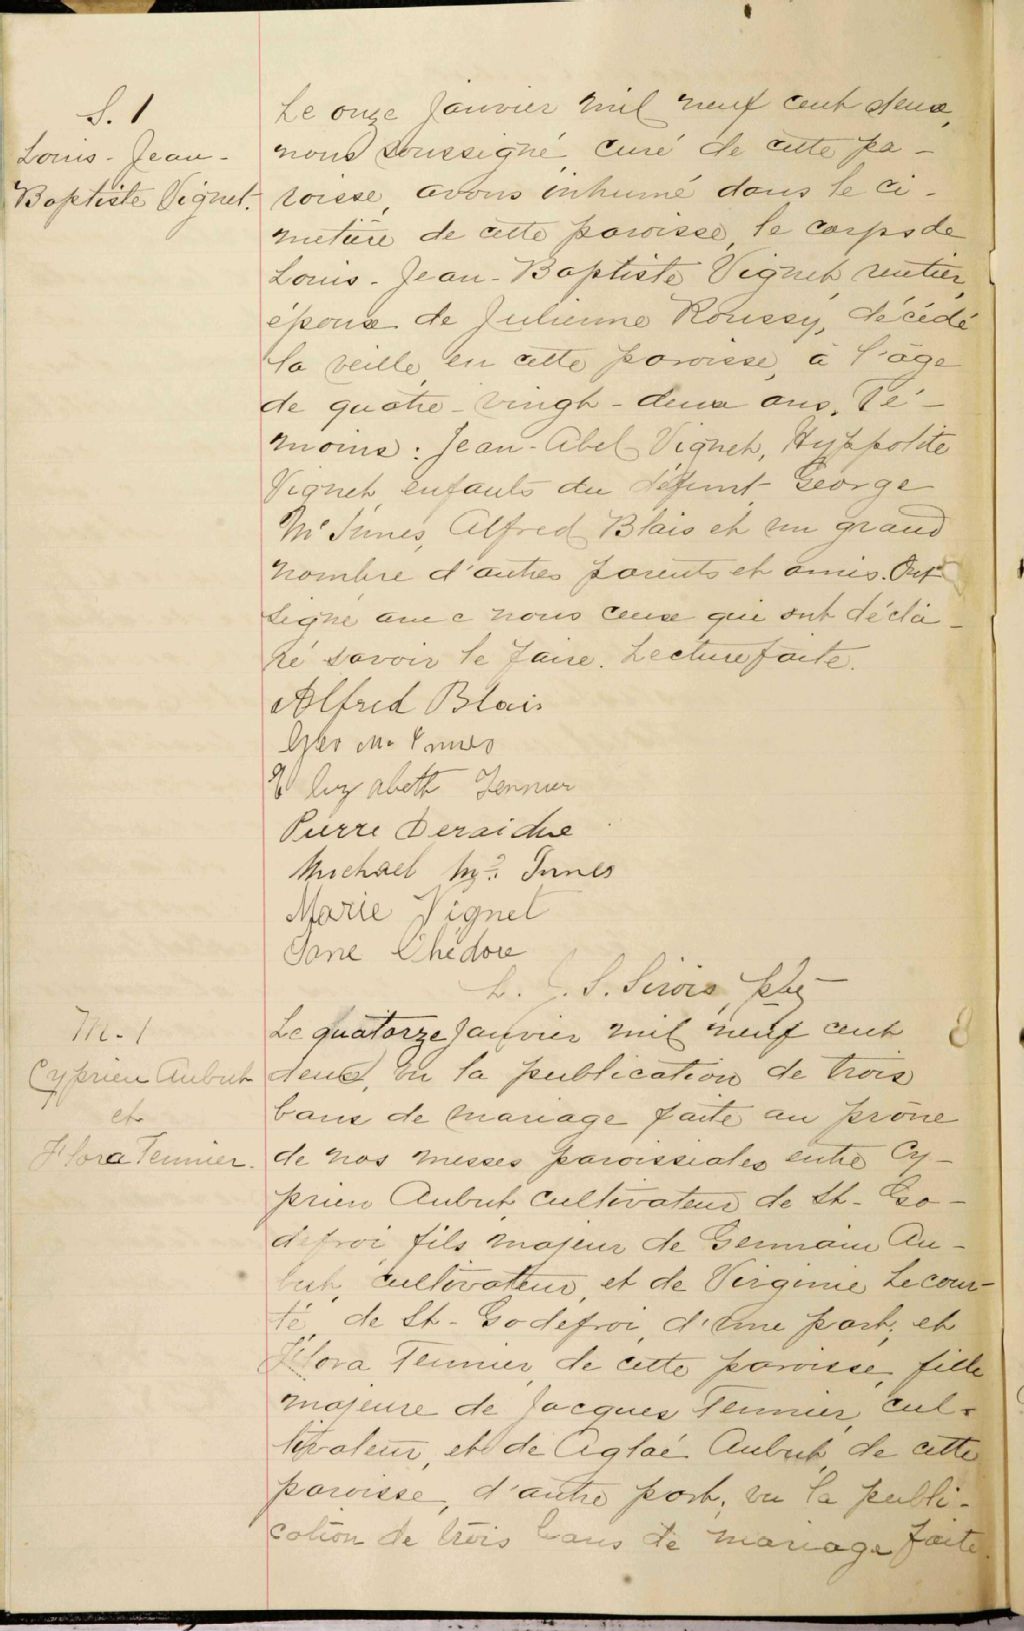 S. 1
Louis-Jean-
Baptiste Vignet.
Le onze Janvier mil neuf cent deux,
nous soussigné, curé de cette pa-
roisse, avons inhumé dans le ci-
metière de cette paroisse, le corps de
Louis-Jean-Baptiste Vignet, rentier,
époux de Julienne Roussy, décédé
la veille, en cette paroisse, à l'âge
de quatre-vingt-deux ans. Té-
moins: Jean-Abel Vignet, Hyppolite
Vignet, enfants du défunt, George
Mc Innes, Alfred Blais et un grand
nombre d'autres parents et amis. Ont
signé avec nous ceux qui ont décla-
ré savoir le faire. Lecture faite.
Alfred Blais
Geo Mc Innes
Elizabeth Tennier
Pierre Deraiche
Michael Mc Innes
Marie Vignet
Jane Chedore
L. J. S. Sirois, ptre
M. 1
Cyprien Aubut
et
Flora Tennier.
Le quatorze Janvier mil neuf cent
deux, vu la publication de trois
bans de mariage faite au prône
de nos messes paroissiales entre Cy-
prien Aubut cultivateur de St-Go-
defroi fils majeur de Germain Au-
but, cultivateur, et de Virginie Lecour-
té, de St-Godefroi, d'une part; et
Flora Tennier, de cette paroisse, fille
majeure de Jacques Tennier, cul-
tivateur, et de Aglaé Aubut, de cette
paroisse, d'autre part; vu la publi-
cation de trois bans de mariage faite